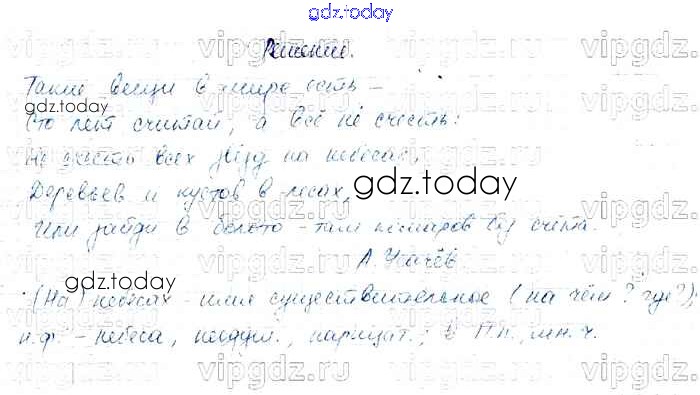 gdz.today
Решение.
Такие вещи в мире есть –
gdz.today
Сто лет считай, а всё не счесть:
Не счесть всех звёзд на небесах,
Деревьев и кустов в лесах,
gdz.today
Или зайди в болото – там комаров без счёта.
А. Усачёв
gdz.today
(На) небесах – имя существительное (на чём? где?);
н.ф. – небеса, неодуш., нарицат.; в П.п., мн.ч.
vipgdz.ru